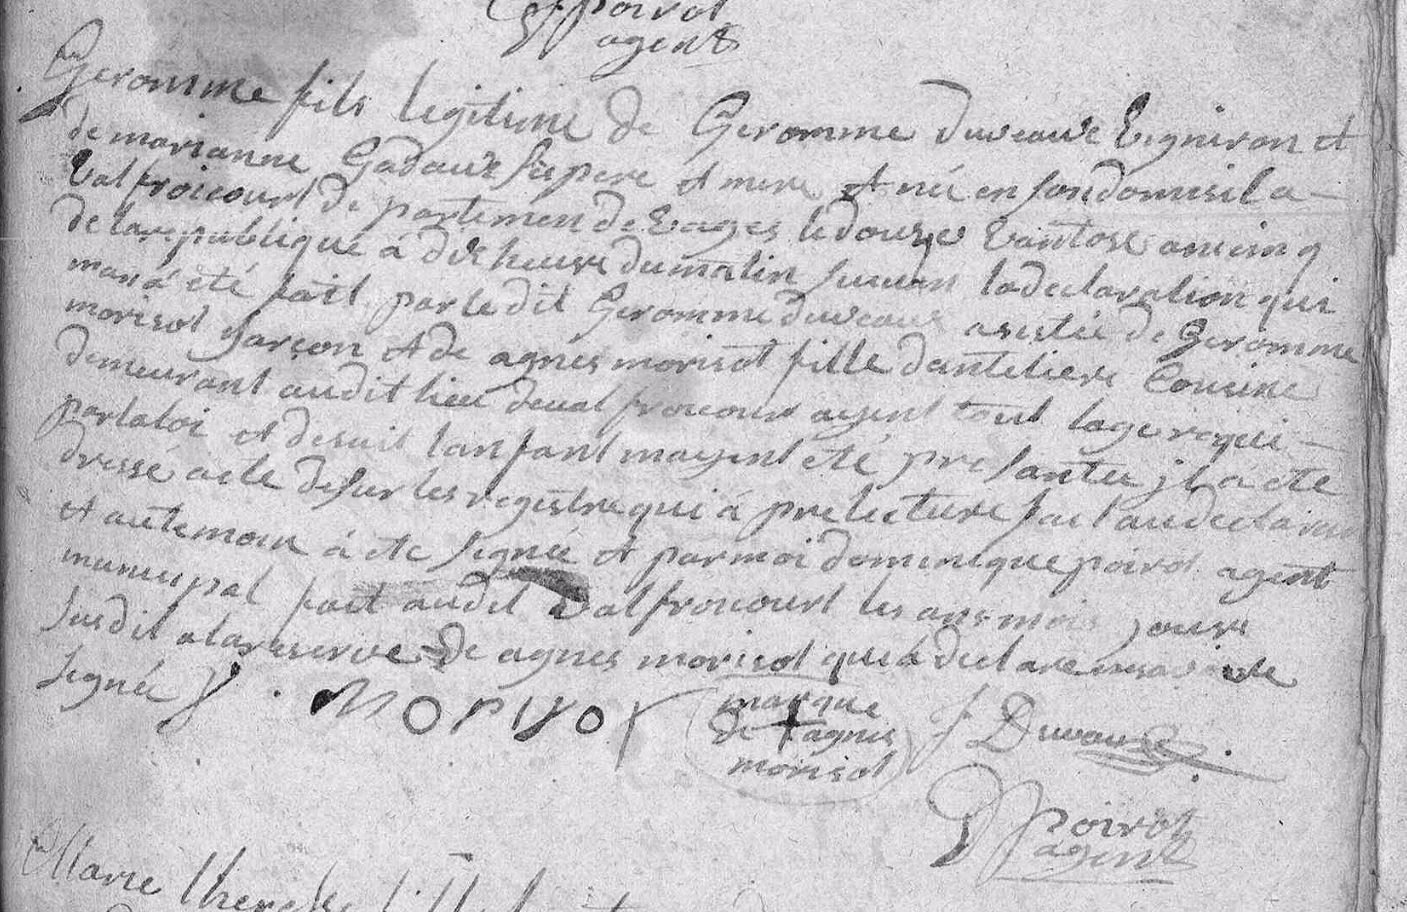 poirot
agent
Geromme fils legitime de Geromme Duveaux Vigniron et
de marianne Gadaux Ses pere et mere et né en son domicil a
Valfroicourt departemen de Voages le douze Vantose an cinq
de la republique a dix heure du matin suivan la declaration qui
man à été fait par le dit Geromme duveaux asistée de Geromme
morisot garçon et de agnès morisot fille danteliere Cousine
demeurant audit lieu de valfroicour ayent tout lage requi
par la loi et desuit lanfant mayent eté presantée jl a ete
dressé acte desur les registre qui á pre lecture fai
et au temoin á ete signée et par moi dominique poirot agent
municipal fait audit valfroicourt les ans mois jours
susdit a la reserve de agnes morisot qui a declare
signée J. Morisot
marque
de + agnes
morisot
J Duvaux
D poirot
agent
Marie therese fille